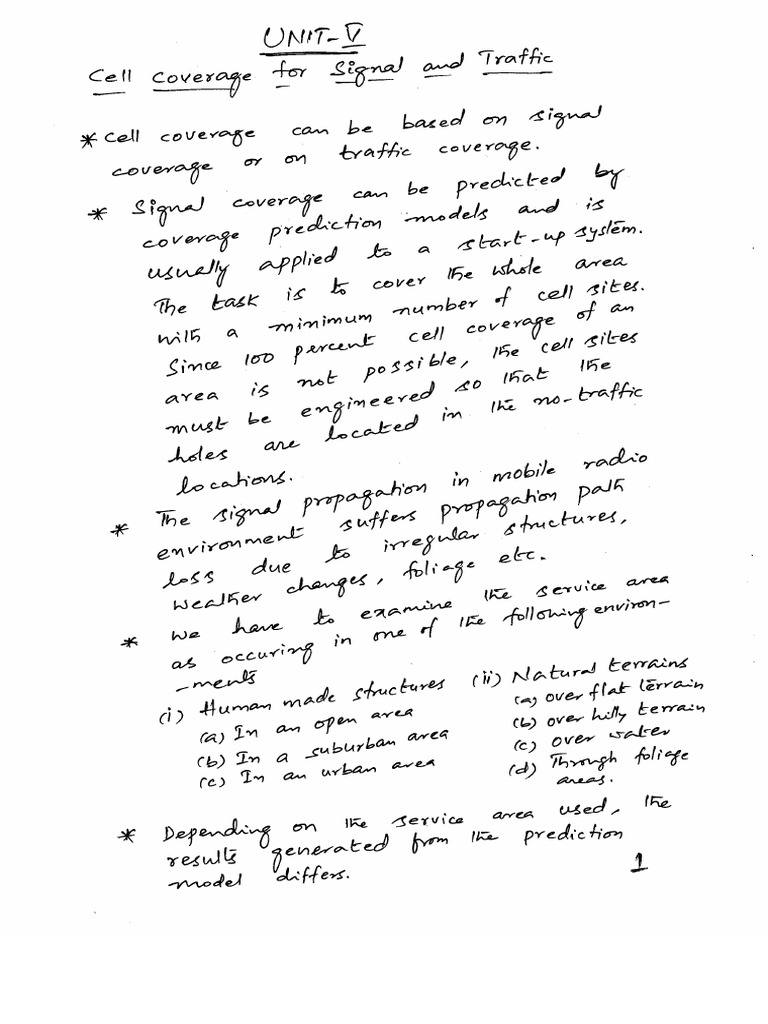 UNIT-V
Cell Coverage for Signal and Traffic
* Cell coverage can be based on signal
coverage or on traffic coverage.
* Signal coverage can be predicted by
coverage prediction models and is
usually applied to a start-up system.
The task is to cover the whole area
with a minimum number of cell sites.
Since 100 percent cell coverage of an
area is not possible, the cell sites
must be engineered so that the
holes are located in the no-traffic
locations.
* The signal propagation in mobile radio
environment suffers propagation path
loss due to irregular structures,
weather changes, foliage etc.
* We have to examine the service area
as occuring in one of the following environ-
-ments
(i) Human made structures
(a) In an open area
(b) In a suburban area
(c) In an urban area
(ii) Natural terrains
(a) over flat terrain
(b) over hilly terrain
(c) over water
(d) Through foliage
areas.
* Depending on the service area used, the
results generated from the prediction
model differs.
1